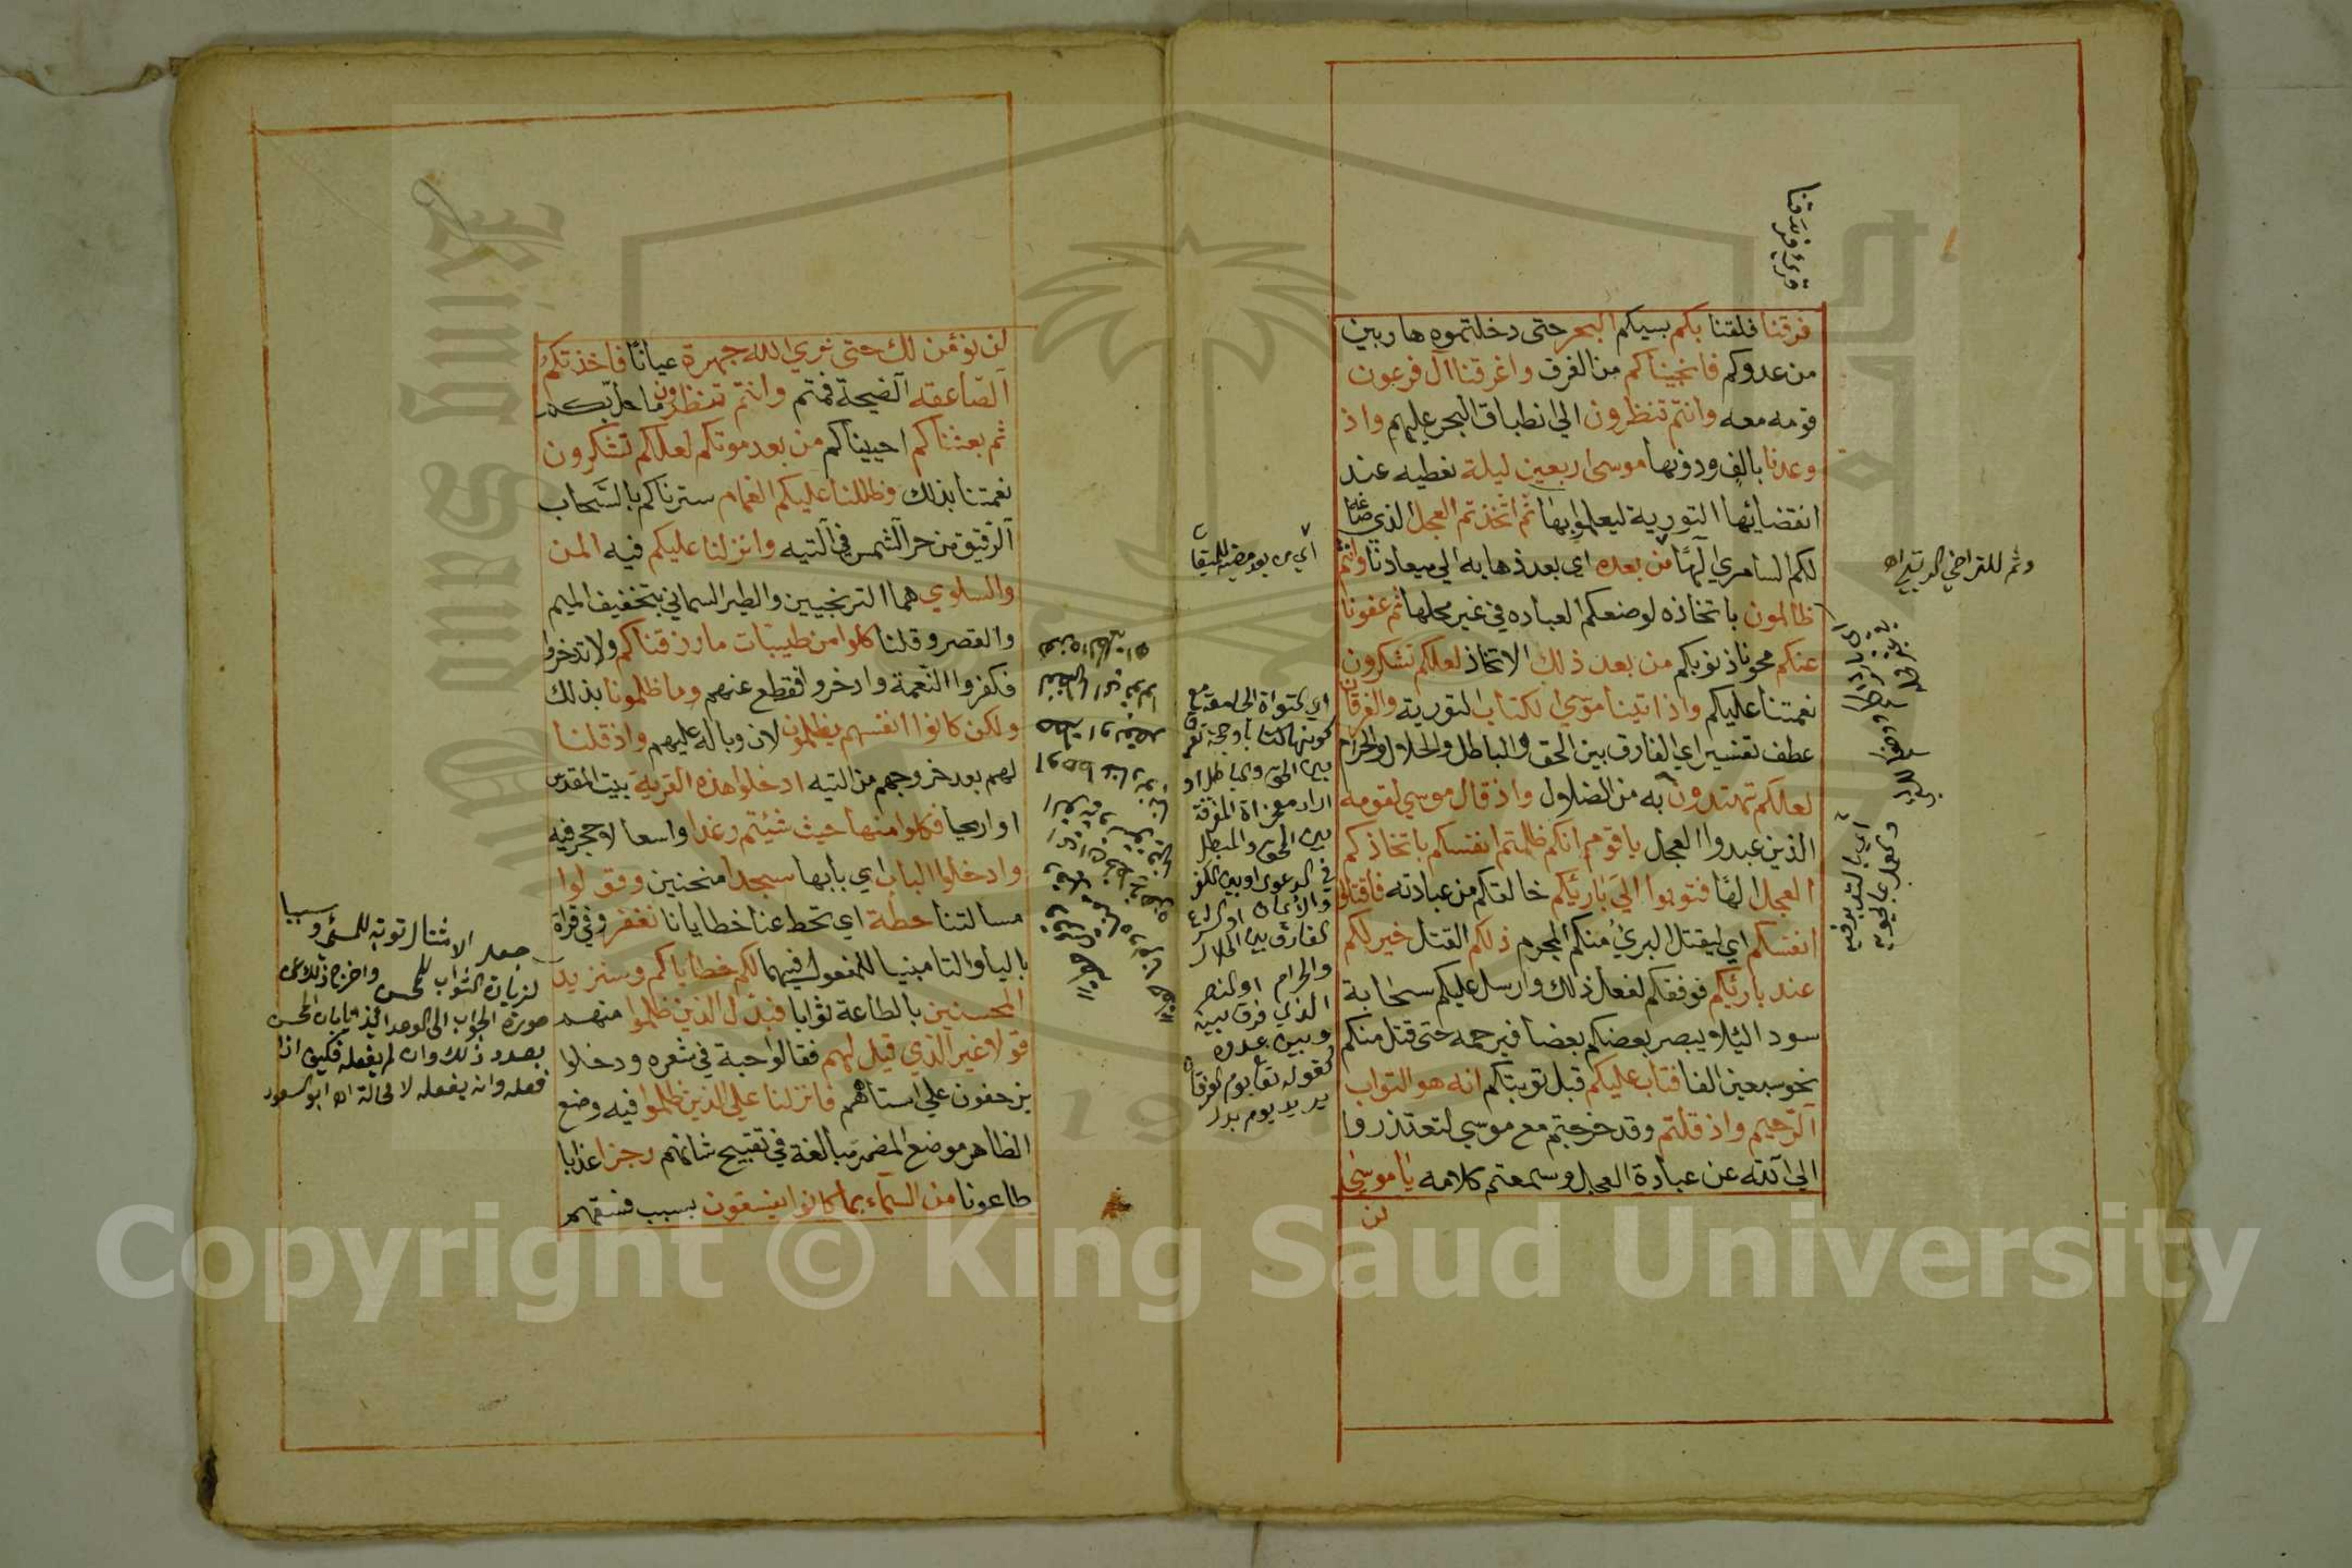 فرقنا فلقنا بكم بسببكم البحر حتى دخلتموه هاربين
من عدوكم فانجيناكم من الغرق واغرقنا آل فرعون
قومه معه وانتم تنظرون الي انطباق البحر عليهم واذ
وعدنا بالف ودونها موسى اربعين ليلة نعطيه عند
انقضائها التورية ليعملوا بها ثم اتخذتم العجل الذي صاغه
لكم السامري آلهًا من بعده اي بعد ذهابه الي ميعادنا وانتم
ظالمون باتخاذه لوضعكم العباده في غير محلها ثم عفونا
عنكم محونا ذنوبكم من بعد ذلك الاتخاذ لعلكم تشكرون
نعمتنا عليكم واذ اتينا موسي الكتاب التورية والفرقان
عطف تفسير اي الفارق بين الحق والباطل والحلال والحرام
لعلكم تهتدون به من الضلال واذ قال موسي لقومه
الذين عبدوا العجل يا قوم انكم ظلمتم انفسكم باتخاذكم
العجل الهًا فتوبوا الي بارئكم خالقكم من عبادته فاقتلوا
انفسكم اي ليقتل البرئ منكم المجرم ذلكم القتل خير لكم
عند بارئكم فوفقكم لفعل ذلك وارسل عليكم سحابة
سودا ليلا يبصر بعضكم بعضا فيرحمه حتى قتل منكم
نحو سبعين الفا فتاب عليكم قبل توبتكم انه هو التواب
الرحيم واذ قلتم وقد خرجتم مع موسي لتعتذروا
الي الله عن عبادة العجل وسمعتم كلامه يا موسى
لن
قرئ فرّقنا
اي من بعد مضيه للميقات
اي التوراة الجامعة مع
كونها كتابا وحجة تفرق
بين الحق والباطل او
اراد معجزاة المفرقة
بين الحق والمبطل
في الدعوى او بين الكفر
والايمان او الشرع
الفارق بين الحلال
والحرام او النصر
الذي فرق بينه
وبين عدوه
كقوله تعا يوم الفرقان
يريد يوم بدر
لن نؤمن لك حتى نري الله جهرة عيانًا فاخذتكم
الصاعقه الصيحة فمتم وانتم تنظرون ما حل بكم
ثم بعثناكم احييناكم من بعد موتكم لعلكم تشكرون
نعمتنا بذلك وظللنا عليكم الغمام سترناكم بالسحاب
الرقيق من حر الشمس في التيه وانزلنا عليكم فيه المن
والسلوي هما الترنجبين والطير السماني بتخفيف الميم
والقصر وقلنا كلوا من طيبات ما رزقناكم ولا تدخروا
فكفروا النعمة وادخروا فقطع عنهم وما ظلمونا بذلك
ولكن كانوا انفسهم يظلمون لان وباله عليهم واذ قلنا
لهم بعد خروجهم من التيه ادخلوا هذه القرية بيت المقدس
او اريحا فكلوا منها حيث شيئتم رغدا واسعا لا حجر فيه
وادخلوا الباب اي بابها سجدا منحنين وقولوا
مسالتنا حطة اي تحط عنا خطايانا نغفر وفي قراة
باليا والتا مبنيا للمفعول فيهما لكم خطاياكم وسنزيد
المحسنين بالطاعة ثوابا فبدل الذين ظلموا منهم
قولا غير الذي قيل لهم فقالوا حبة في شعره ودخلوا
يزحفون علي استاههم فانزلنا علي الذين ظلموا فيه وضع
الظاهر موضع المضمر مبالغة في تقبيح شانهم رجزا عذابا
طاعونا من السماء بما كانوا يفسقون بسبب فسقهم
جعل الامتثال توبة للمسئ وسببا
لزيادة الثواب للمحسن واخرج ذلك عن
صورة الجواب الى الوعد ايذانا بان المحسن
بصدد ذلك وان لم يفعله فكيف اذا
فعله وانه يفعله لا محالة اه ابو السعود
Copyright © King Saud University